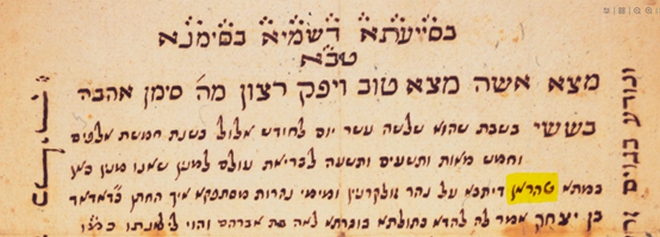 בסייעתא דשמיא בסימנא
טבא
מצא אשה מצא טוב ויפק רצון מה' סימן אהבה
בששי בשבת שהוא שלשה עשר יום לחודש אלול בשנת חמשת אלפים
וחמש מאות ותשעים ותשעה לבריאת עולם למנין שאנו מנין כאן
במתא טהראן דיתבא על נהר ומימי נהרות מסתפקא איך החתן
בן יצחק אמר לה להדא בתולתא בת אברהם והוי לי לאנתו
ונודע בגוים